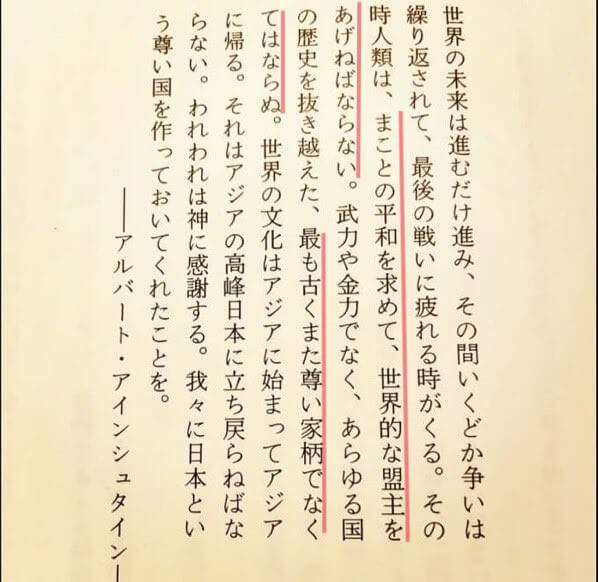 世界の未来は進むだけ進み、その間いくどか争いは
繰り返されて、最後の戦いに疲れる時がくる。その
時人類は、まことの平和を求めて、世界的な盟主を
あげねばならない。武力や金力でなく、あらゆる国
の歴史を抜き越えた、最も古くまた尊い家柄でなく
てはならぬ。世界の文化はアジアに始まってアジア
に帰る。それはアジアの高峰日本に立ち戻らねばな
らない。われわれは神に感謝する。我々に日本とい
う尊い国を作っておいてくれたことを。
――アルバート・アインシュタイン―